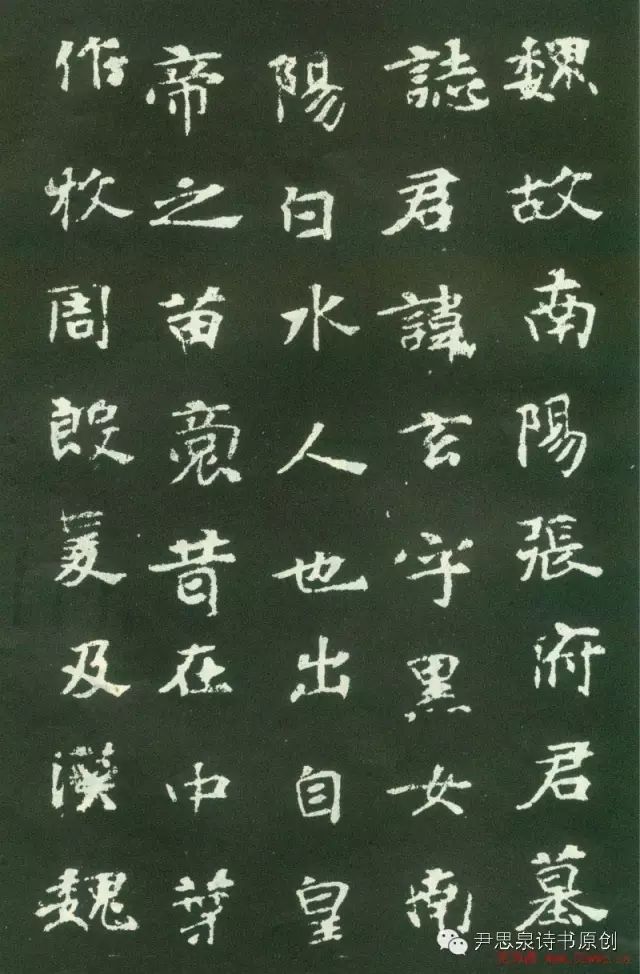 魏故南陽張府君墓
誌君諱玄字黑女南
陽白水人也出自皇
帝之苗裔昔在中葉
作牧周殷爰及漢魏
尹思泉诗书原创